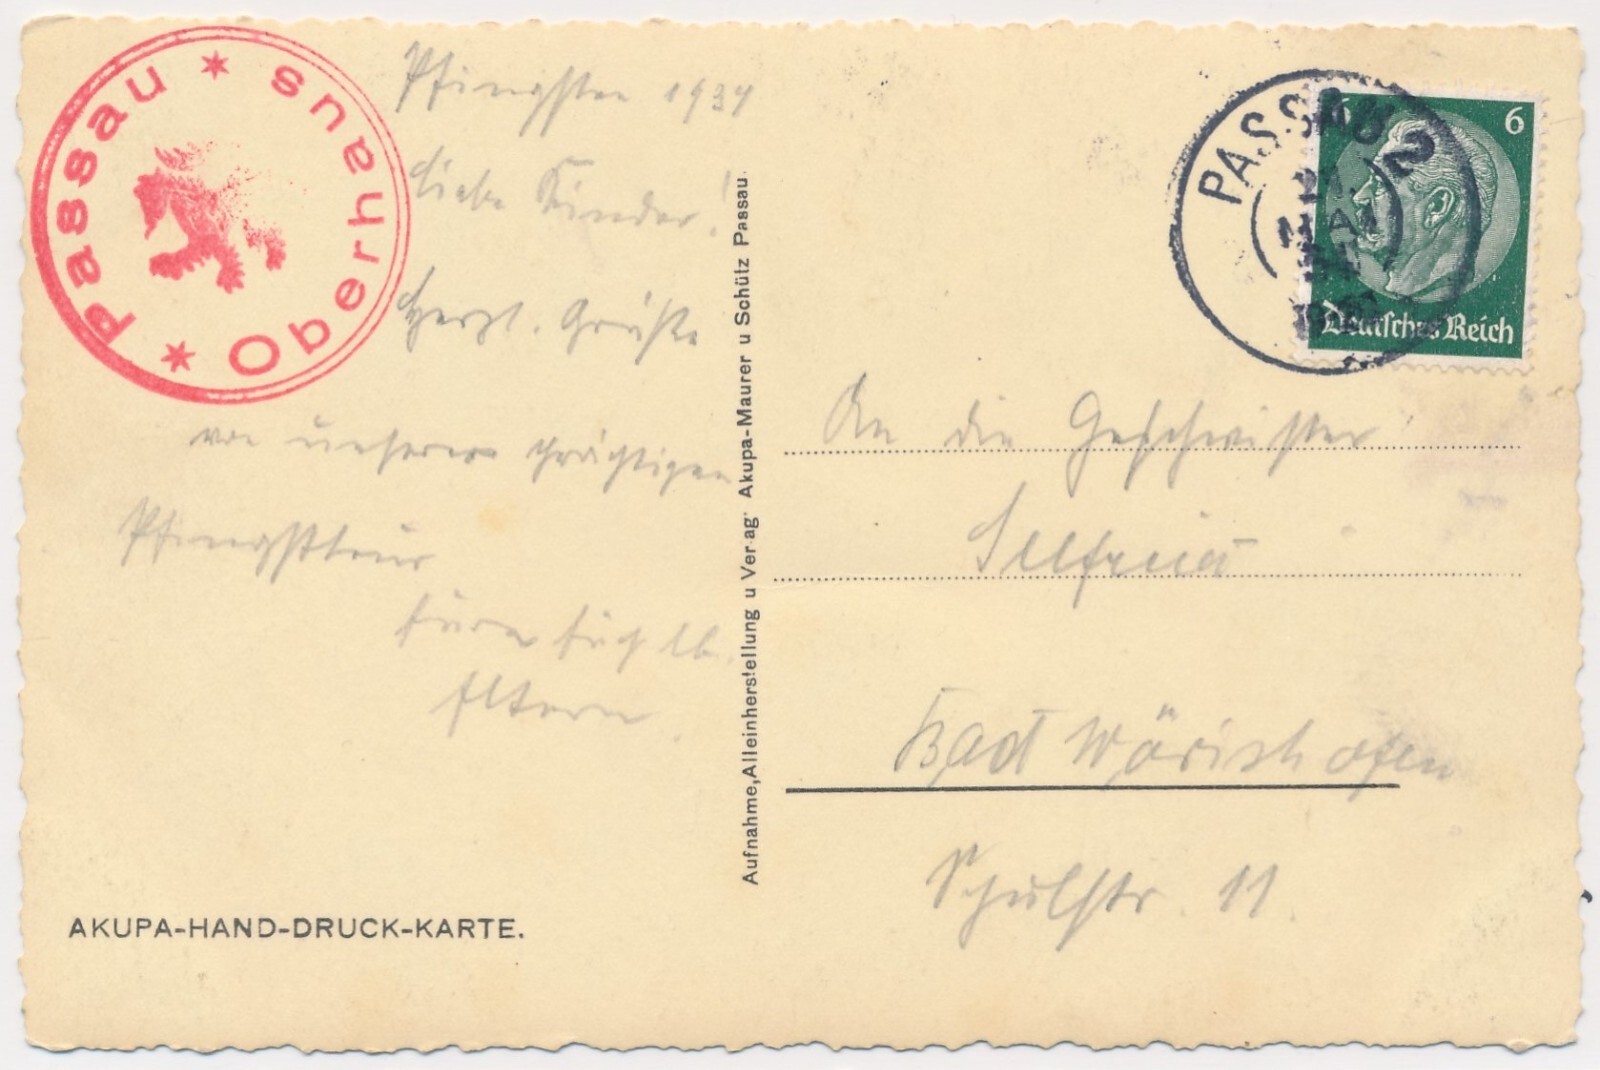 Passau * Oberhaus *
Pfingsten 1934
Liebe Kinder!
Herzl. Grüße
von unserer prächtigen
Pfingsttour
Eltern
AKUPA-HAND-DRUCK-KARTE.
Aufnahme, Alleinherstellung u Verlag: Akupa-Maurer u Schütz Passau.
PASSAU 2
MAI
6
6
Deutsches Reich
An die Geschwister
Bad Wörishofen
Schulstr. 11.